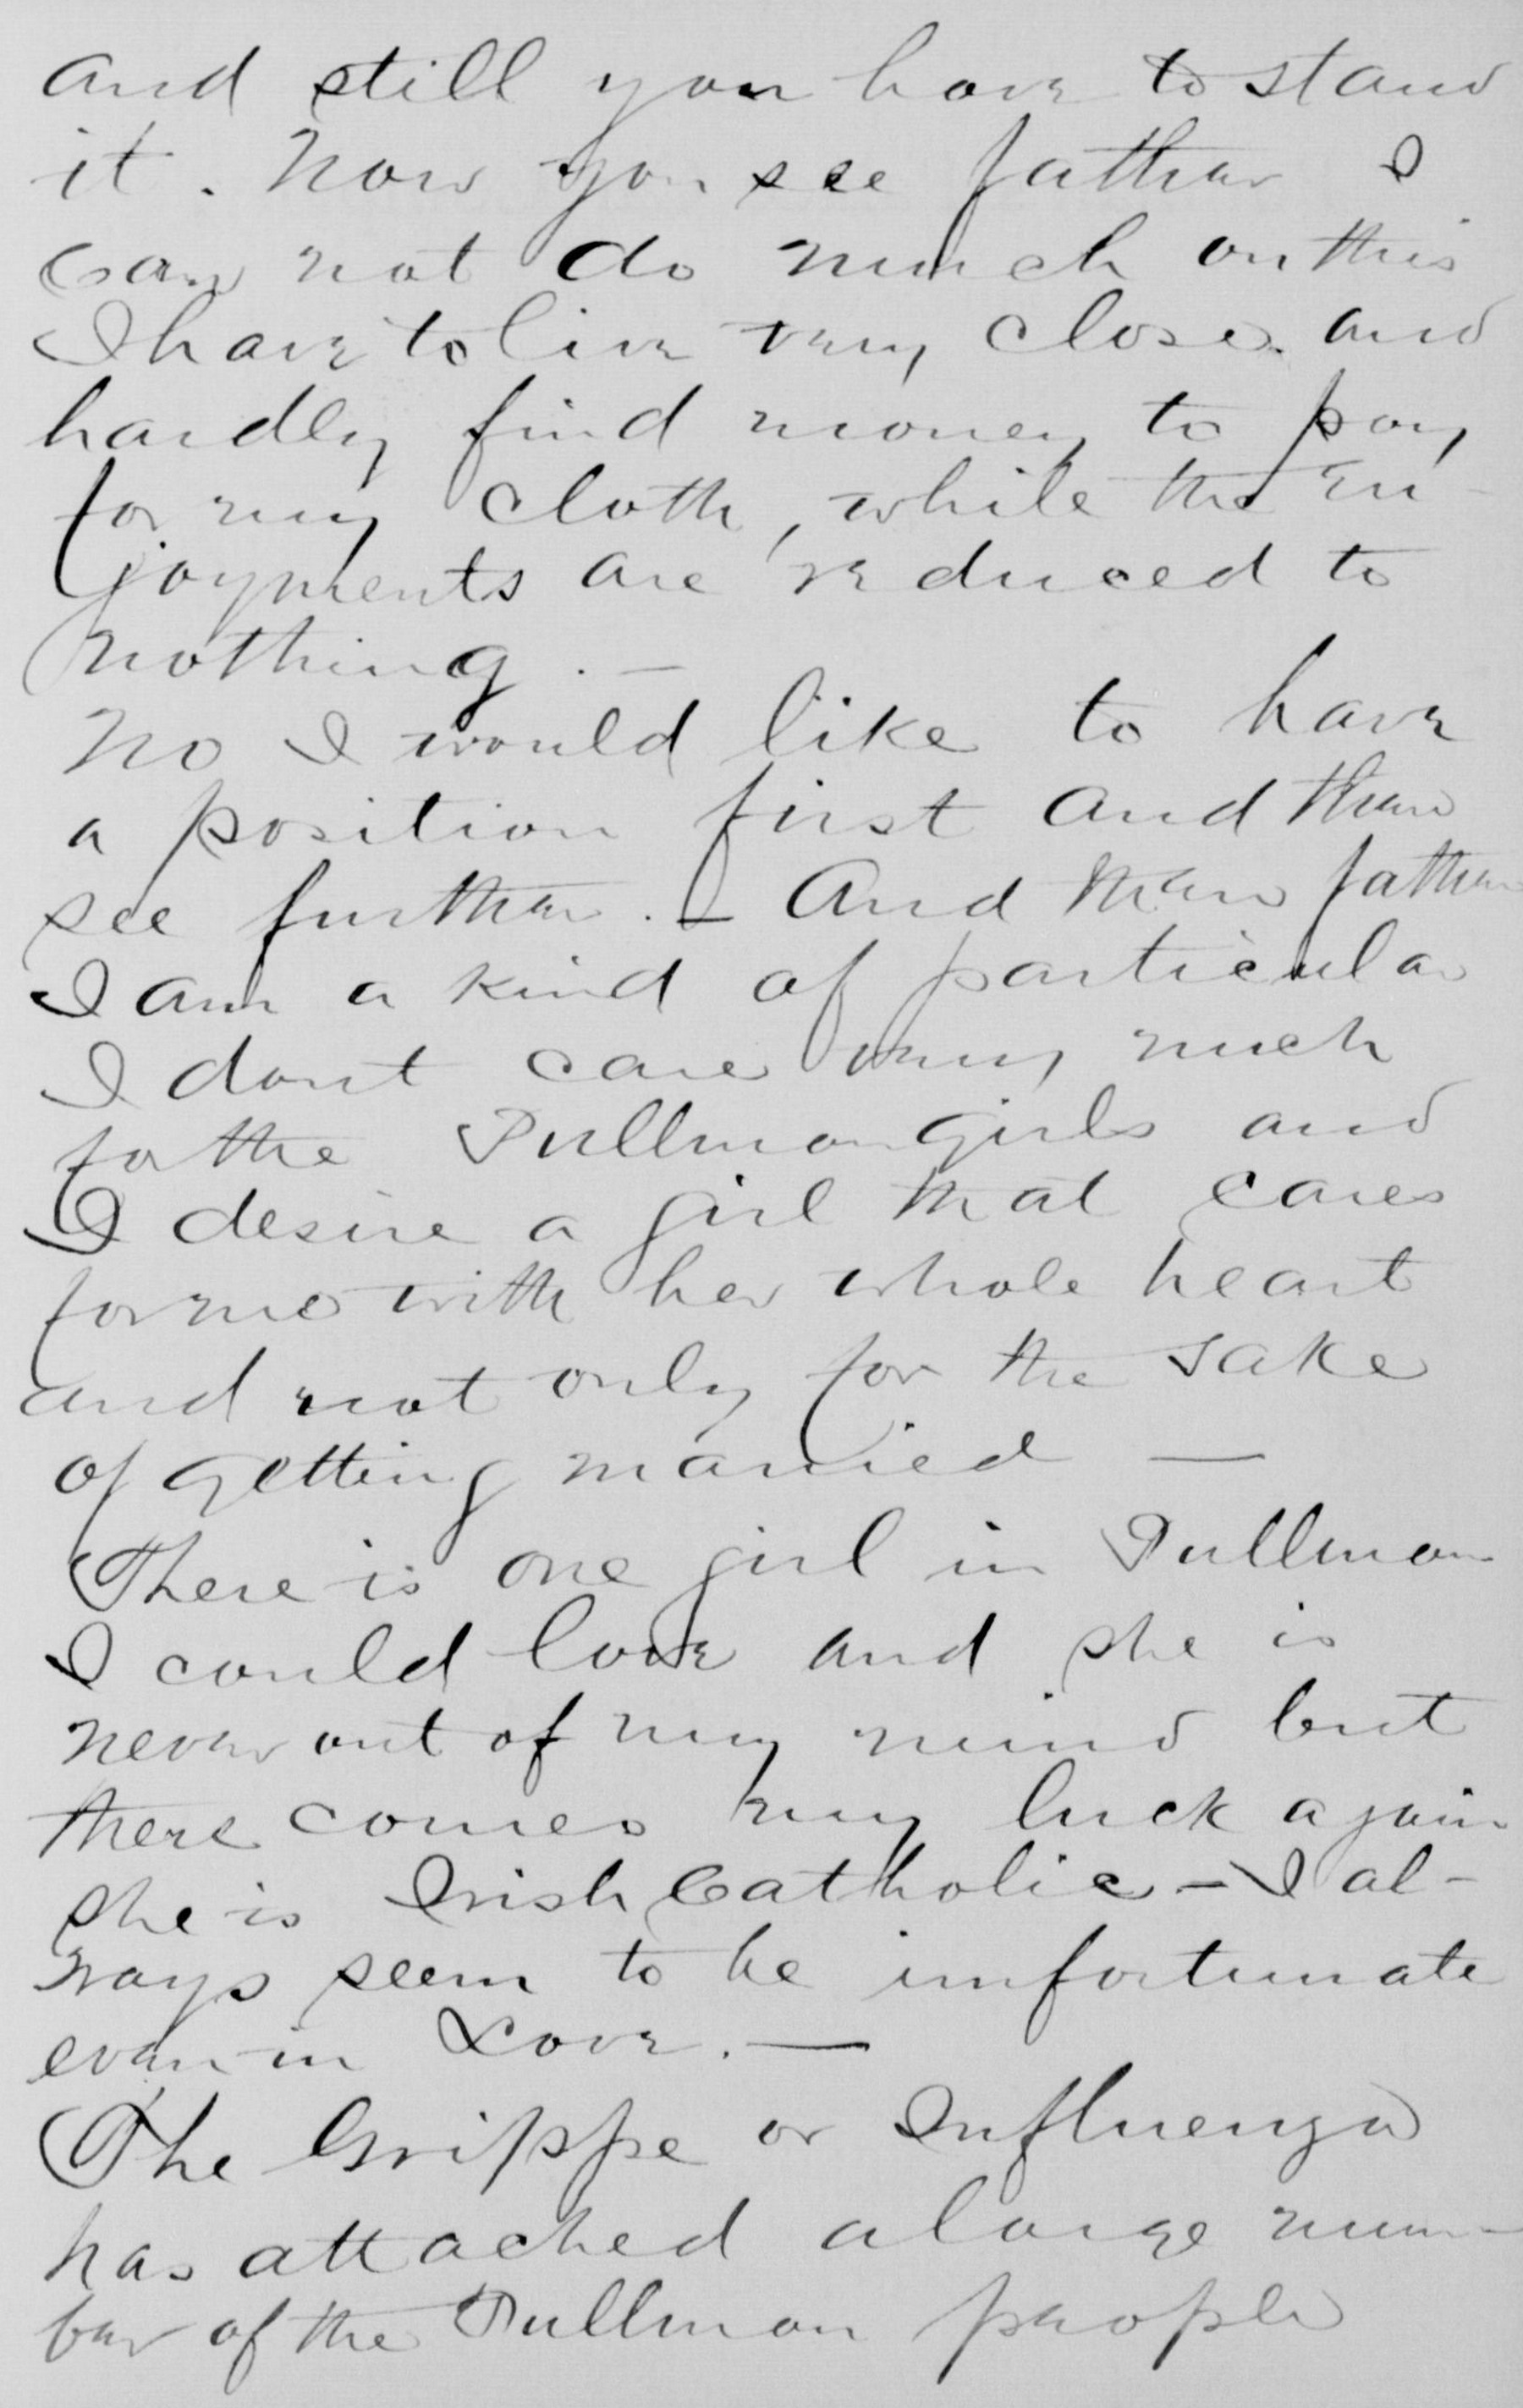 and still you have to stand
it. Now you see father I
can not do much on this
I have to live very close and
hardly find money to pay
for my cloth, while the en-
joyments are reduced to
nothing. —
No I would like to have
a position first and then
see further. — And then father
I am a kind of particular
I dont care very much
for the Pullman girls and
I desire a girl that cares
for me with her whole heart
and not only for the sake
of getting married —
There is one girl in Pullman
I could love and she is
never out of my mind but
there comes my luck again
she is Irish Catholic — I al-
ways seem to be unfortunate
even in Love. —
The Grippe or Influenza
has attached a large num-
ber of the Pullman people